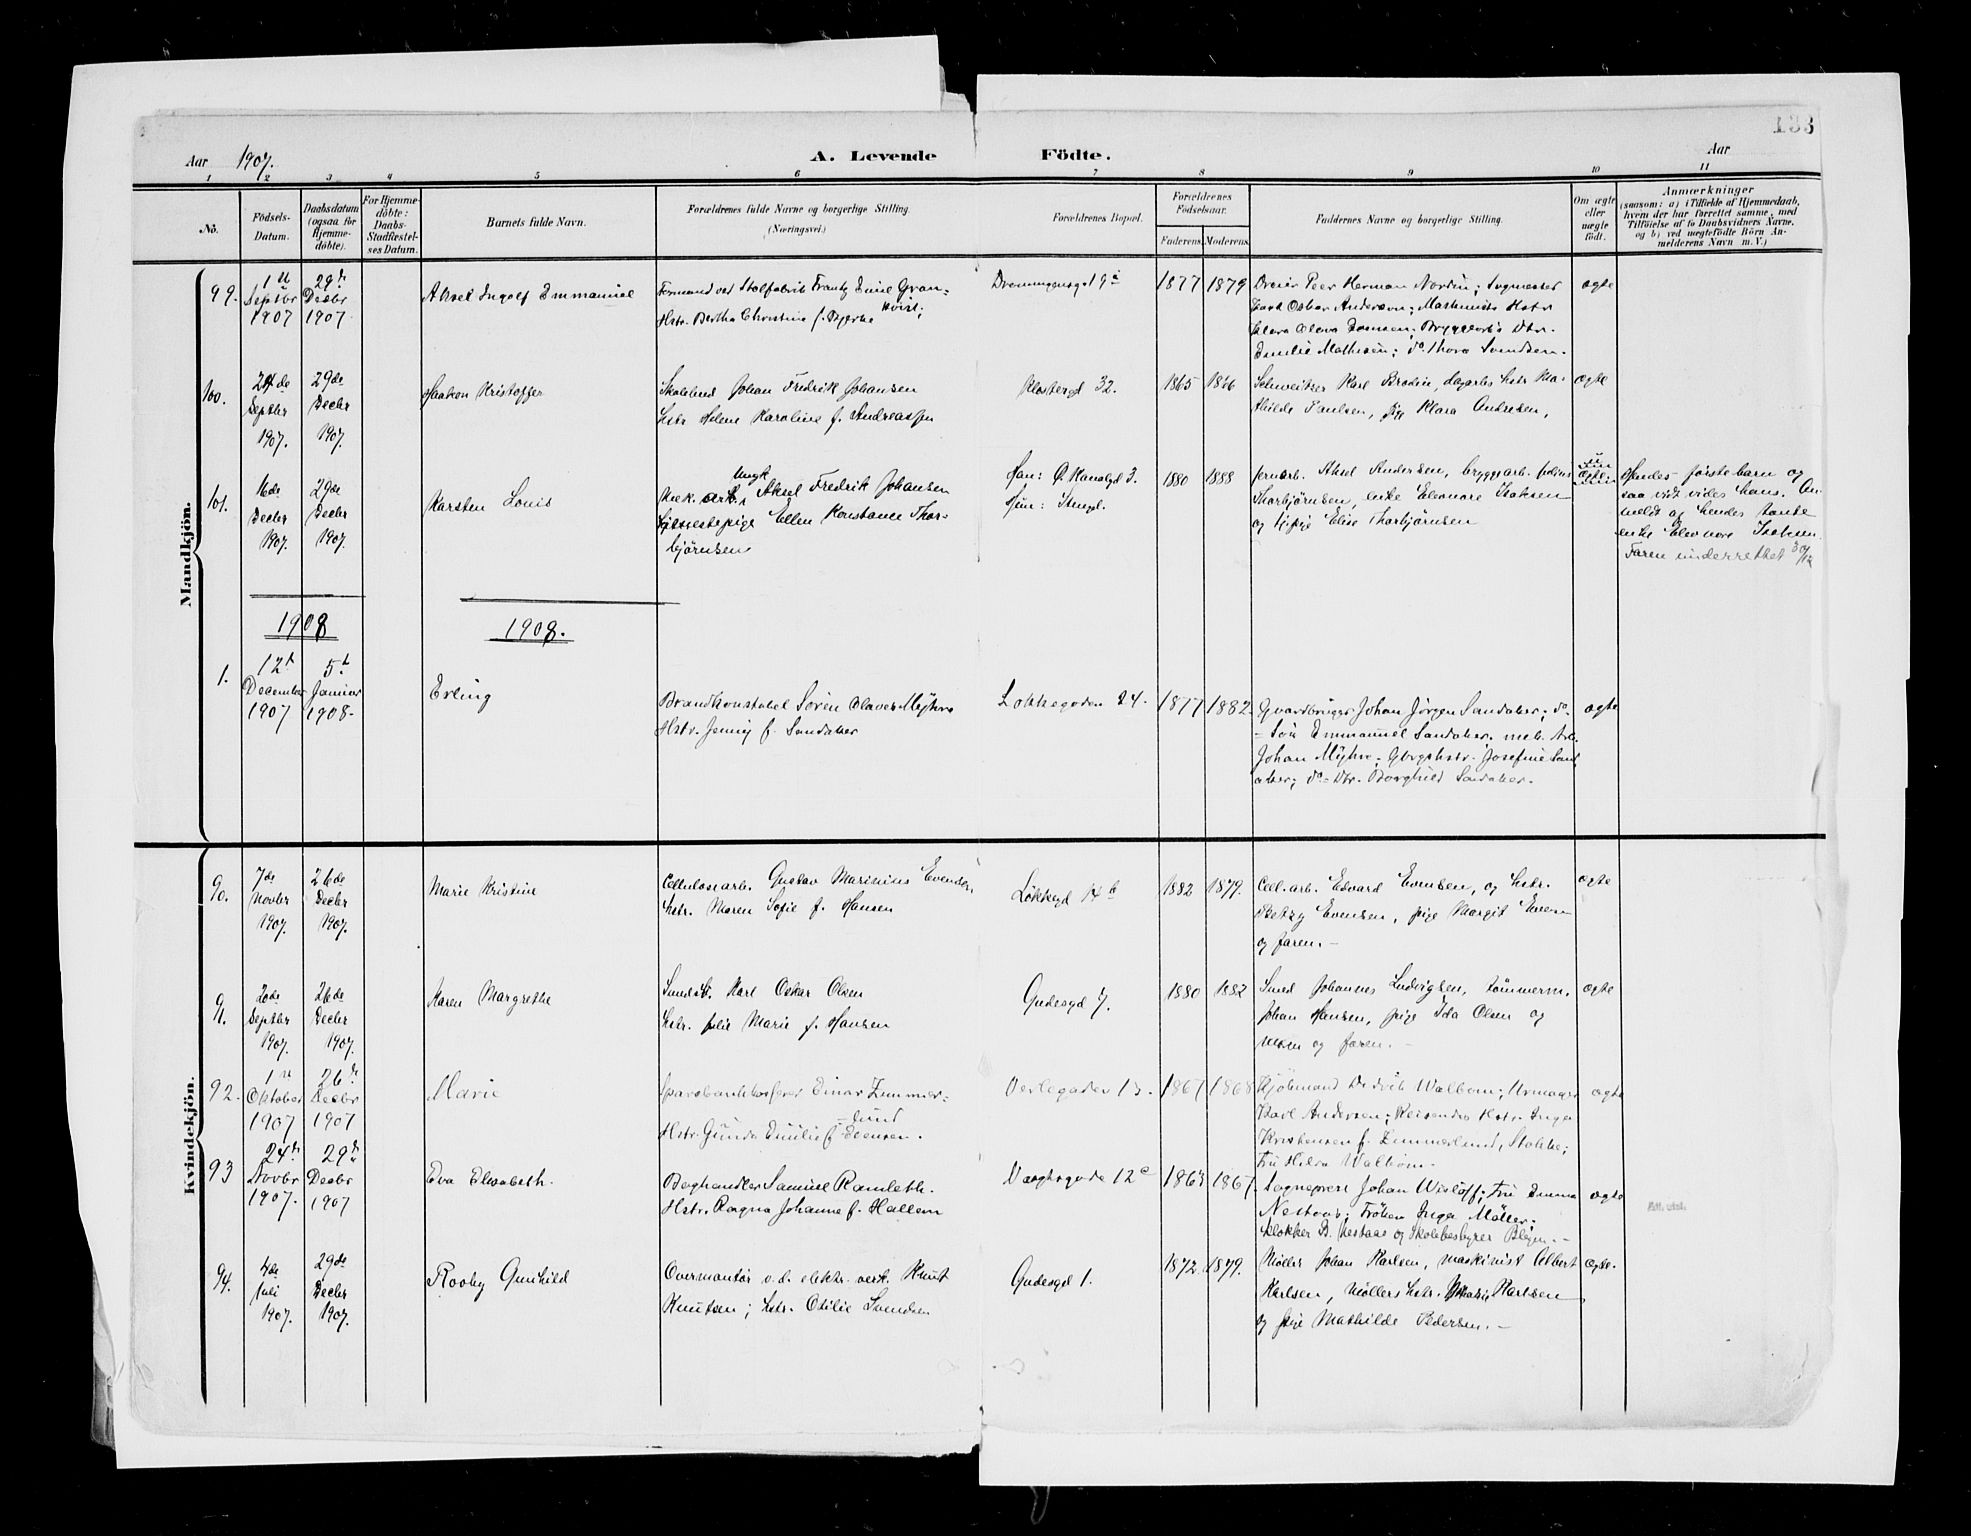 133
Aar 1907. A. Levende Födte. Aar
1 2 3 4 5 6 7 8 9 10 11
No. Födsels-Datum. Daabsdatum (ogsaa for Hjemme-döbte). For Hjemme-döbte: Daabs-Stadfæstel-ses Datum. Barnets fulde Navn. Forældrenes fulde Navne og borgerlige Stilling. (Næringsvei.) Forældrenes Bopæl. Forældrenes Födselsaar. Faderens. Moderens. Faddernes Navne og borgerlige Stilling. Om ægte eller uægte födt. Anmærkninger (saasom: a) i Tilfælde af Hjemmedaab, hvem der har forrettet samme, med Tilföielse af to Daabsvidners Navne, og b) ved uægtefödte Börn An-melderens Navn m. V.)
Mandkjön.
99. Septbr 1907 29de Decbr 1907 Aksel Ingolf Emmanuel
Formand ved Frantz Emil Gran=
kvist;
Hstr. Bertha Christine f. Bjerke
Dronningensgd 19 1877 1879
Dreier Peer Herman Nordin; Sagmester
Karl Oskar Andersen; Maskinists Hstr
Emilie Mathisen; do Thora Svendsen.
ægte
100. 24de Septbr 1907. 29de Decbr 1907. Haakon Kristoffer
Johan Fredrik Johansen
Hstr Helene Karoline f. Andreassen
Klostergd 32. 1865 1866
Schweitzer Karl Brodin, dagarbs hstr Ma-
thilde Paulsen, pige Klara Andresen,
ægte
101. 16de Decbr 1907. 29de Decbr 1907. Karsten Louis
Ungk.
Aksel Fredrik Johansen
pige Ellen Konstance Thor-
björnsen
Han: Ø. Kanalgd 3.
Hun: Stengd.
1880 1888
jernarb. Aksel Andersen, bryggearb.
Thorbjörnsen, enke Eleonore Isaksen
og pige Elise Thorbjörnsen
uægte
Hendes förste barn og
saa vidt vides hans. An-
meldt af hendes tante
enke Eleonore Isaksen.
Faren underrettet 30/12
1908 1908.
1. 12te December 1907 5te Januar 1908- Erling
Brandkonstabel Sören Olaves Myhre
Hstr. Jenny f. Sandaker
Løkkegaden 24. 1877 1882
Gaardbruger Johan Jörgen Sandaker; do=
Sön Emmanuel Sandaker; mek. Arb.
Johan Myhre; Gbrgshstr. Josefine Sand
aker; do=Dtr. Borghild Sandaker.
ægte
Kvindekjön.
90. 7de Novbr 1907. 26de Decbr 1907. Marie Kristine
Cellulosearb. Gustav Marinius Evensen,
hstr. Maren Sofie f. Hansen
Løkkegd 14 b 1882 1879.
Cell.arb. Edvard Evensen, og hstr.
Betzy Evensen, pige Margit Evensen
og faren.-
ægte
91. 26de Septbr 1907. 26de Decbr 1907. Karen Margrethe
Karl Oskar Olsen
hstr. Julie Marie f. Hansen
Gudesgd 7. 1880 1882
Smed Johannes Ludvigsen, tömmerm.
Johan Hansen, pige Ida Olsen og
moren og faren.-
ægte
92. 1ste Oktober 1907 26de Decbr 1907 Marie
Sparebankkasserer Einar Zimmer=
lund
Hstr. Gunda Emilie f. Svensen.
Verlegaden 13. 1867 1868
Kjöbmand Didrik Walbom; Urmager
Karl Andersen; Reisendes Hstr. Inga
Kristensen f. Zimmerlund, Stokke;
Fru Hilda Walbom.
ægte
93 24de Novbr 1907. 29de Decbr 1907 Eva Elisabeth.
Boghandler Samuel Ramleth.
Hstr. Ragna Johanne f. Hallem
Vægtergade 12c 1863 1867.
Sogneprest Johan Wislöff; Fru Emma
Nestaas; Fröken Inga Möller;
Klokker B. Nestaas og Skolebestyrer Blegen.-
ægte
Att. utst.
94. 4de Juli 1907. 29de Decbr 1907. Rooby Gunhild
Overmontör v.d. elektr. verk. Knut
Knutsen; hstr. Otilie Svendsen
Gudesgd 1. 1872. 1879.
Møller Johan Karlsen, maskinist Albert
Karlsen, møllers hstr. Marie Karlsen
og pige Mathilde Pedersen.-
ægte.